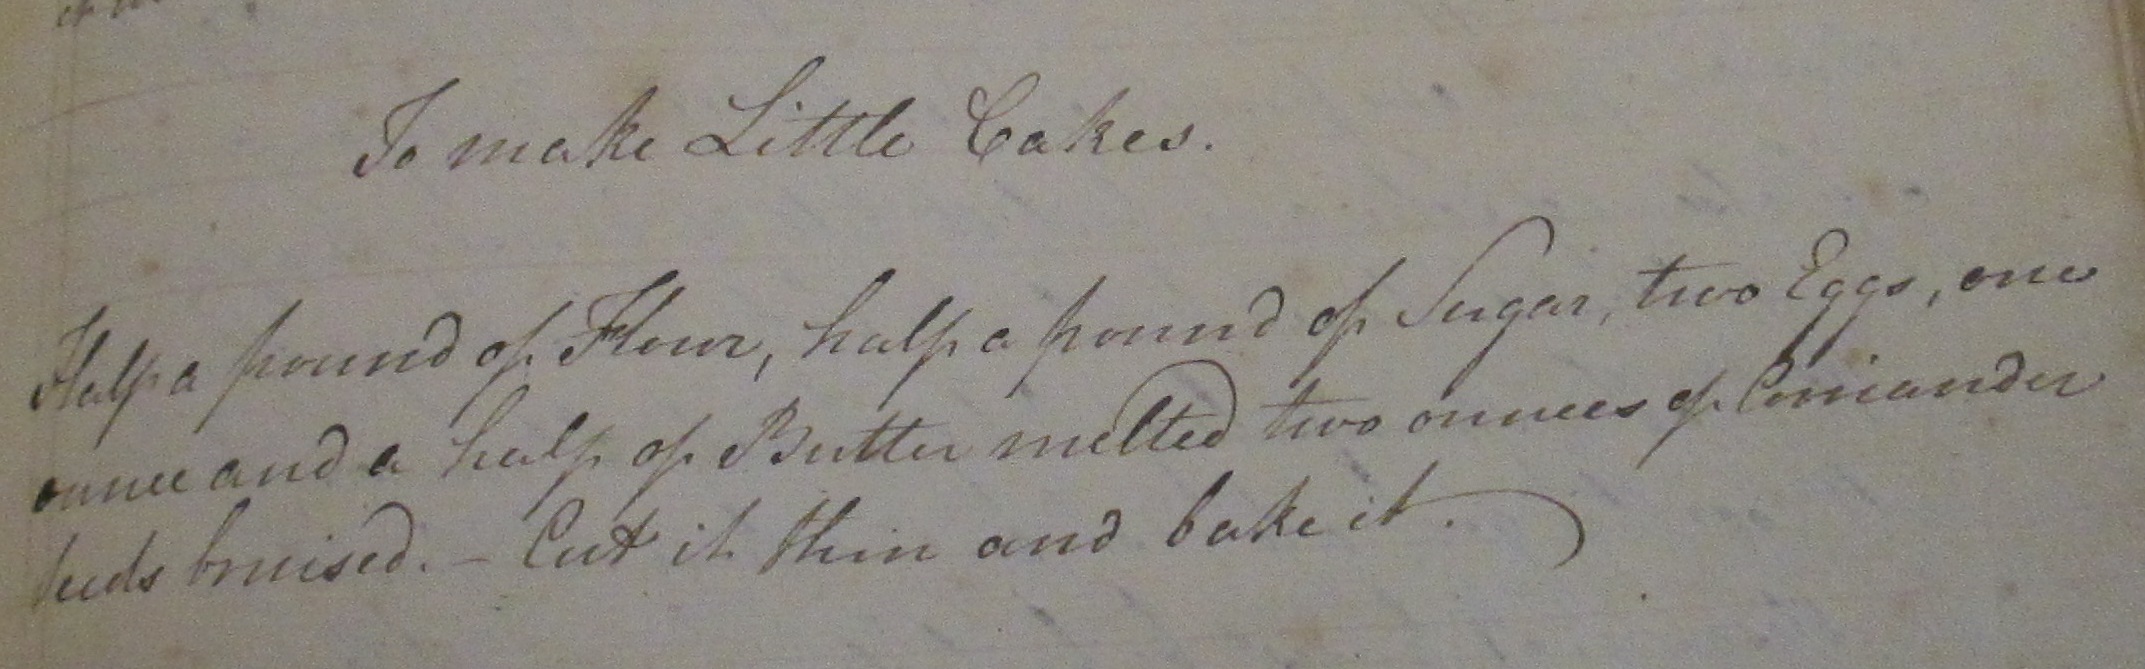 To make Little Cakes.
Half a pound of Flour, half a pound of Sugar, two Eggs, one
ounce and a half of Butter melted two ounces of Coriander
seeds bruised. - Cut it thin and bake it.